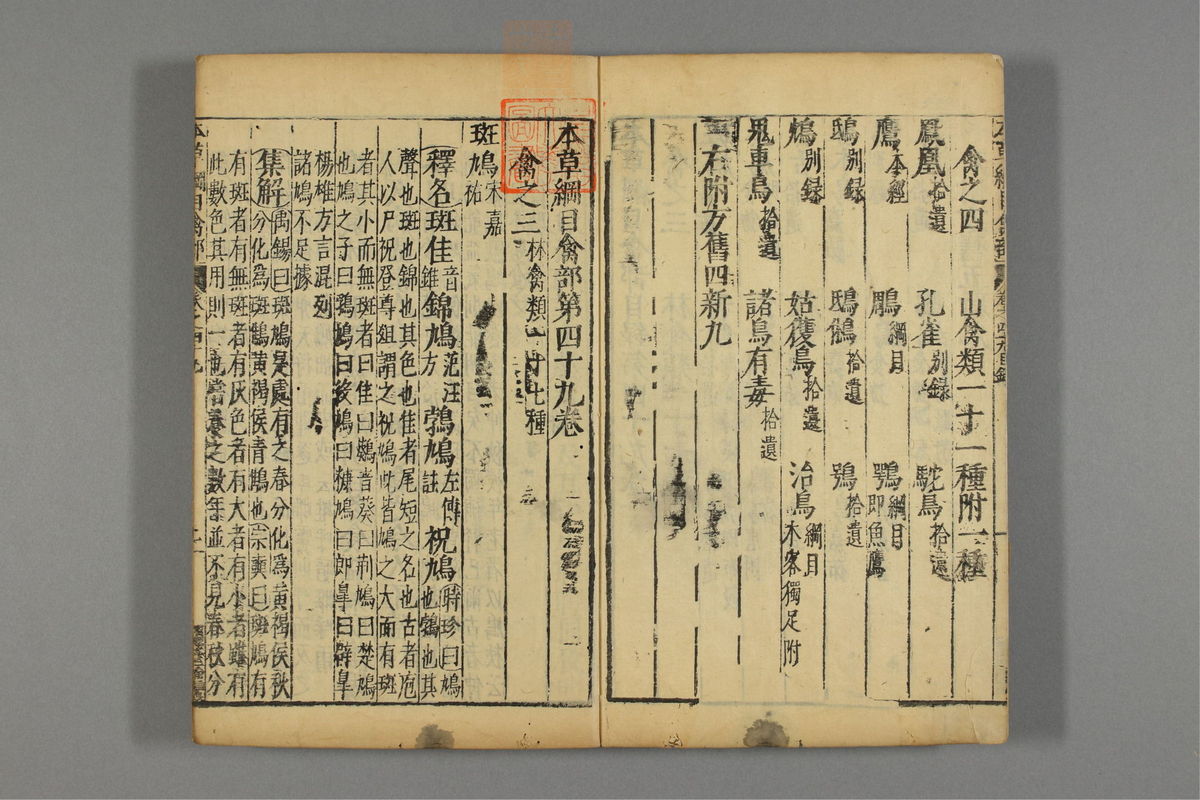 禽之四 山禽類一十二種附一種
鳳凰拾遺 孔雀别錄 駝鳥拾遺
鷹本經 鵰綱目 鶚綱目即魚鷹
鴟别錄 鴟鵂拾遺 鴞拾遺
鴆别錄 姑獲鳥拾遺 治鳥綱目木客獨足附
鬼車鳥拾遺 諸鳥有毒拾遺
右附方舊四新九
本草綱目禽部第四十九卷
禽之三 林禽類一十七種
斑鳩宋嘉祐
釋名斑隹音錐錦鳩范汪方鵓鳩左傳註祝鳩時珍曰鳩也鶻也其
聲也斑也錦也其色也隹者尾短之名也古者庖
人以尸祝登尊俎謂之祝鳩此皆鳩之大而有斑
者其小而無斑者曰隹曰鷑音葵曰荊鳩曰楚鳩
也鳩之子曰鳩曰役鳩曰糠鳩曰郎臯曰辟臯
楊雄方言混列
諸鳩不足據
集解禹錫曰斑鳩是處有之春分化為黄褐侯秋
分化為斑鶻黄褐侯青鶻也宗奭曰斑鳩有
有斑者有無斑者有灰色者有大者有小者雖有
此數色其用則一也嘗養之數年並不見春秋分